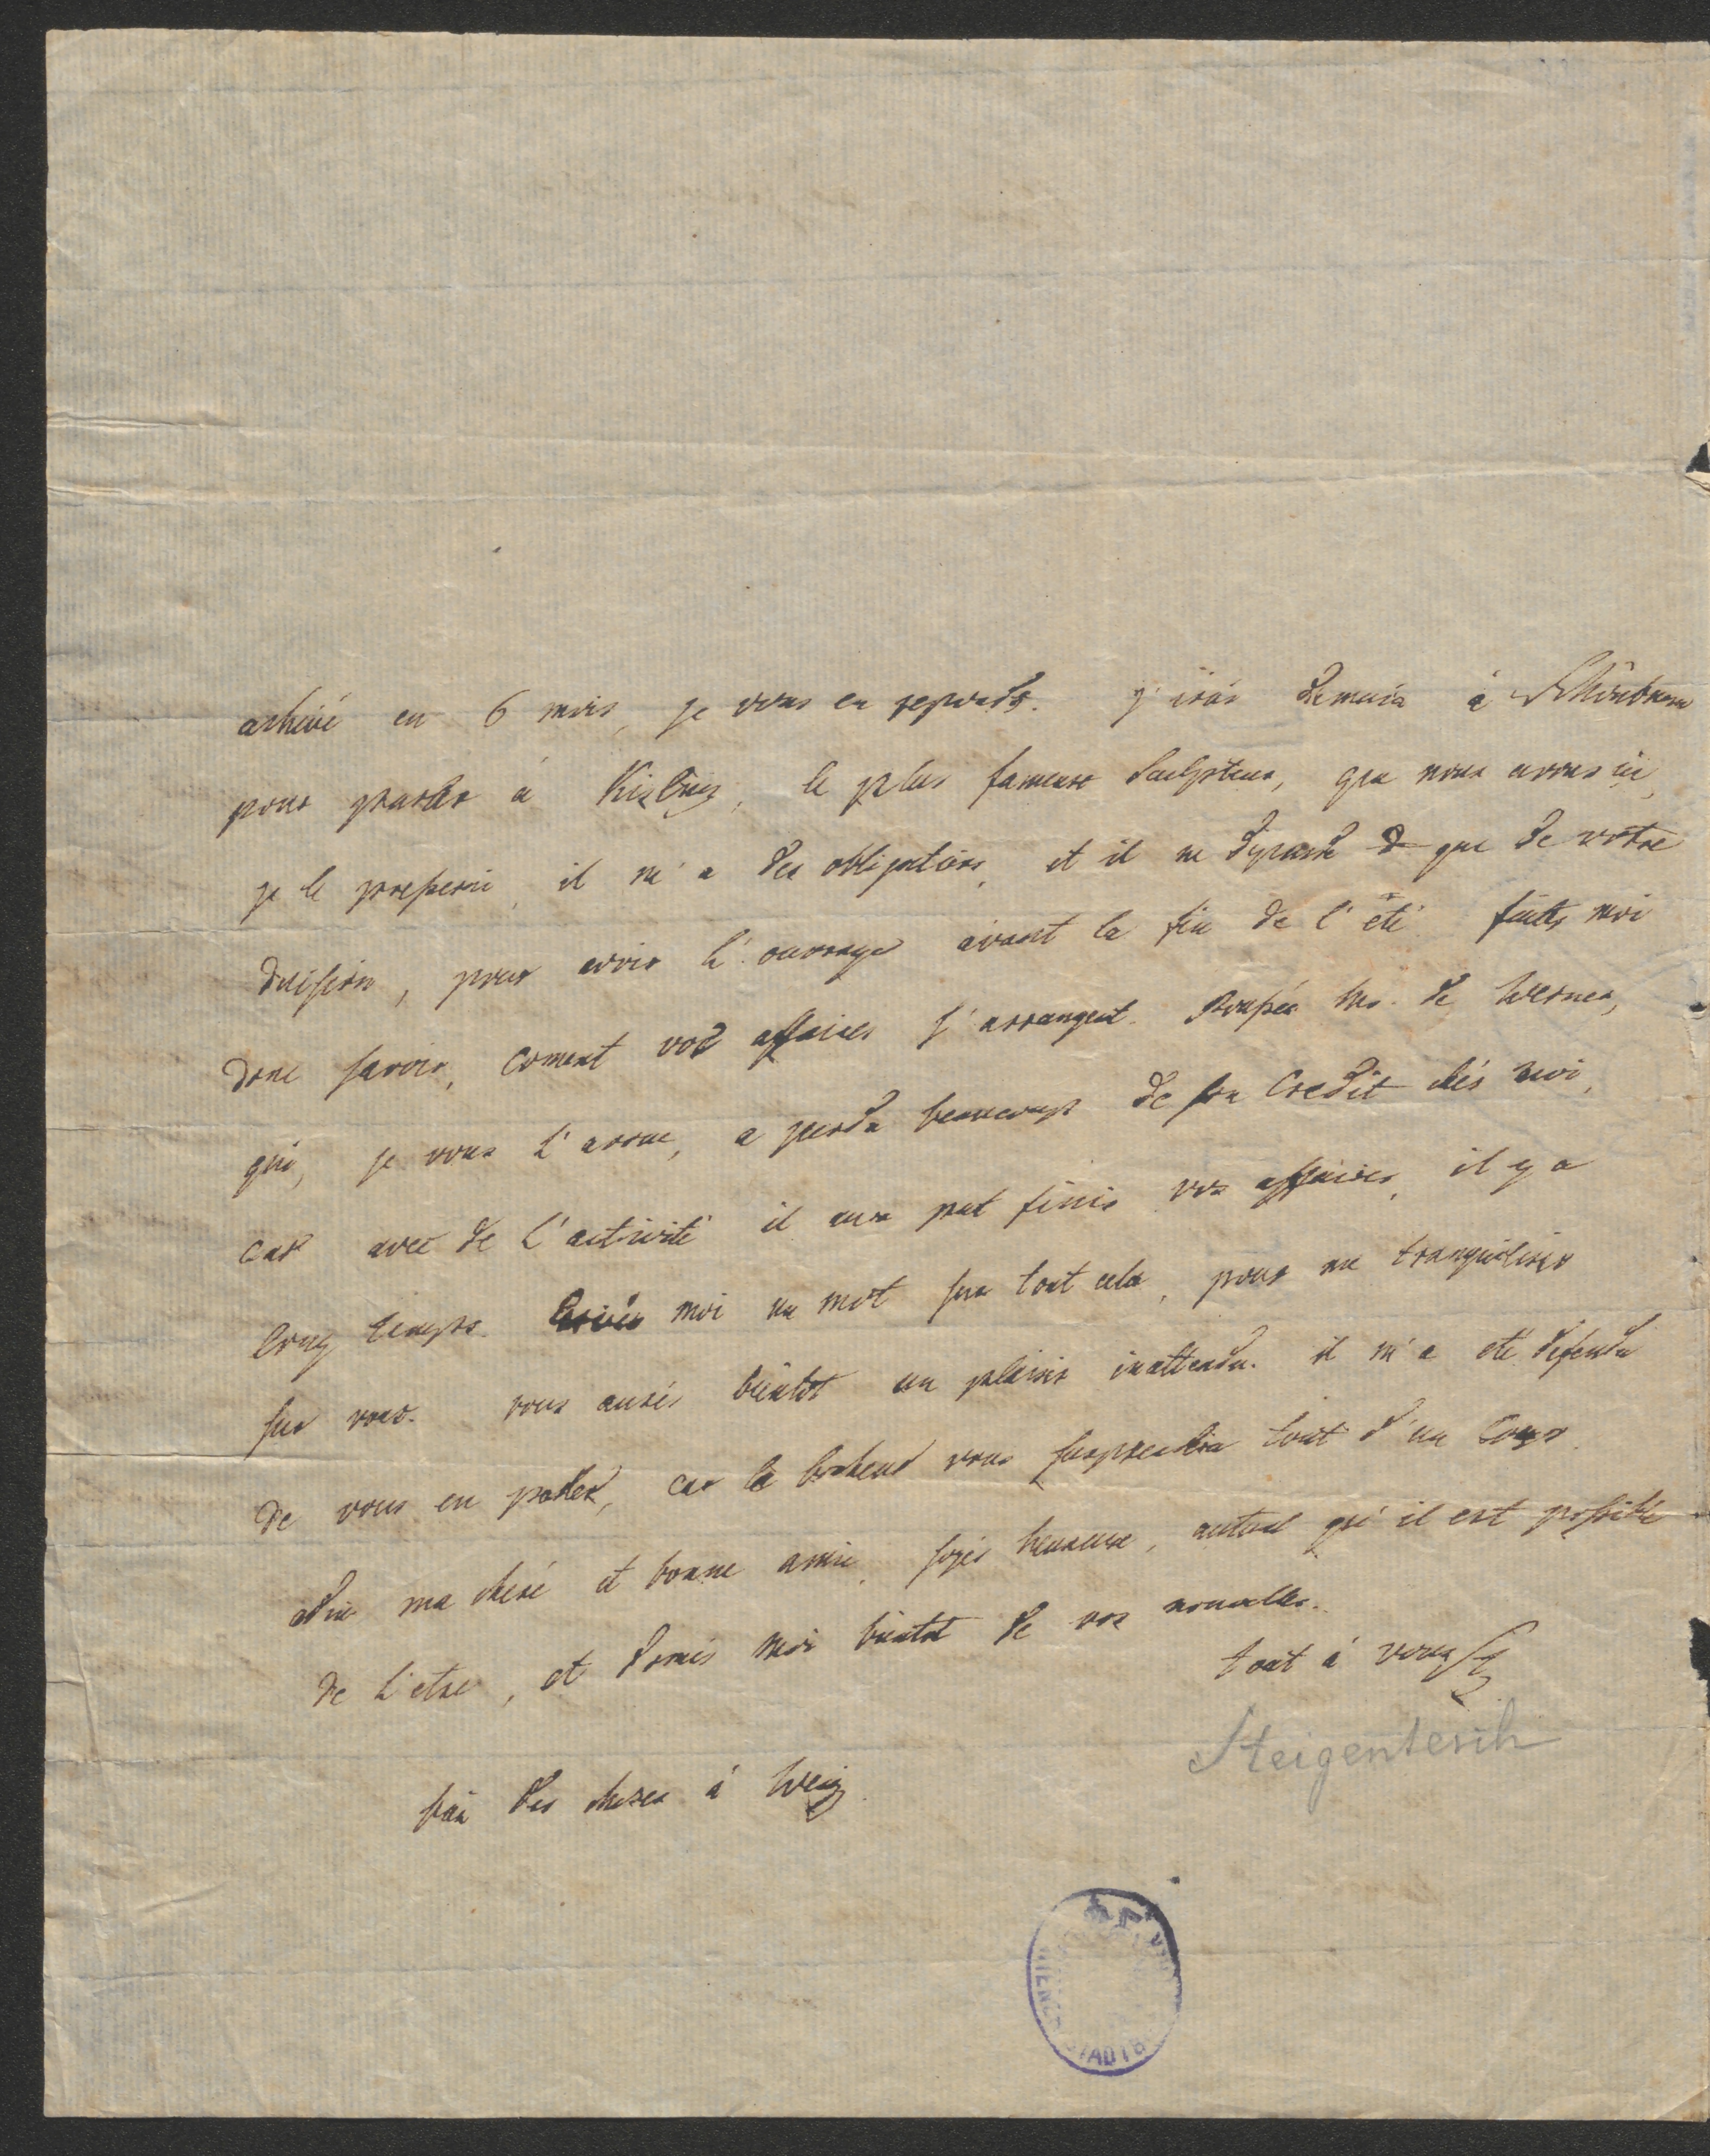 achevé en 6 mois, je vous en reponds. j'irai demain à Schönbrun
pour parler à Kisling, le plus fameux Sculpteur, que nous avons ici,
je le presserai, il m'a des obligations, et il ne depend que de votre
decision, pour avoir l'ouvrage avant la fin de l'été. faites moi
donc savoir, coment vos affaires s'arrangent. Poussés Mr. de Werner,
qui, je vous l'avoue, a perdu beaucoup de son Credit chés moi,
car avec de l'activité il aura put finir vos affaires, il y a
long temps. Ecrivés moi un mot sur tout cela, pour me tranquiliser
sur vous. vous aurés bientot un plaisir inattendu. il m'a eté defendu
de vous en parler, car le bonheur vous surprendra tout d'un Coup.
adieu ma cheré et bonne amie, soyés heureuse, autant qu'il est possible
de l'etre, et donés moi bientot de vos nouvelles.
tout à vous St
Steigentesch
des choses à Weig